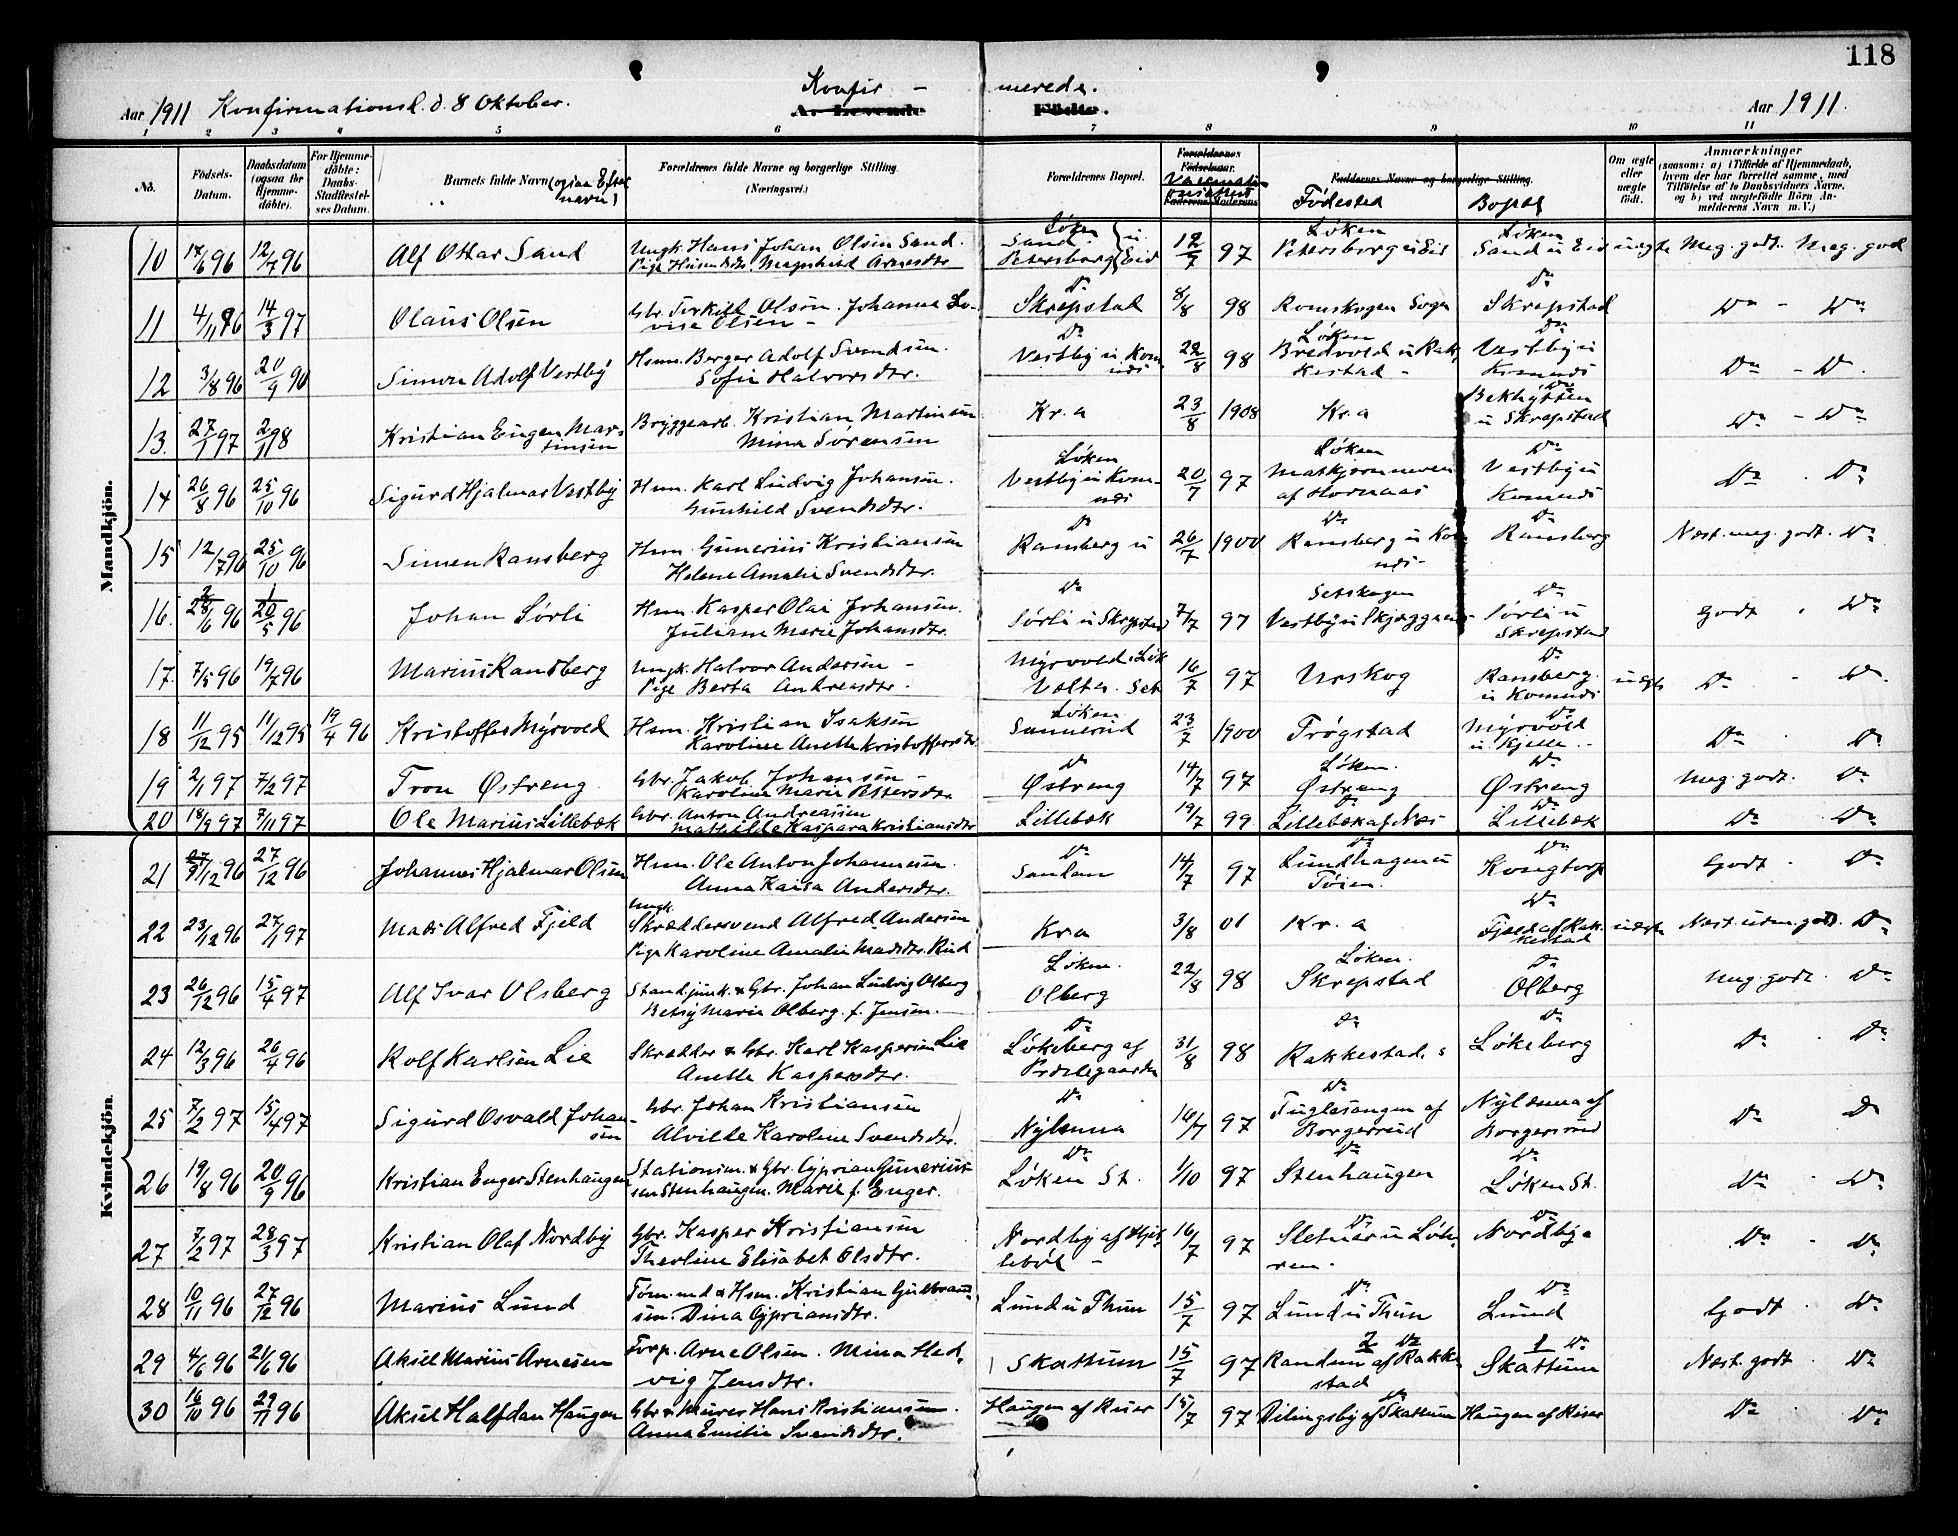 118
Aar 1911 Konfirmationsl. d. 8 Oktober.
Konfir - merede.
A. Levende Fødte.
Aar 1911.
1 2 3 4 5 6 7 8 9 10 11
No.
Födsels-Datum.
Daabsdatum (ogsaa for Hjemme-döbte).
For Hjemme-döbte: Daabs-Stadfæstel-ses Datum.
Barnets fulde Navn (ogsaa Efternavn)
Forældrenes fulde Navne og borgerlige Stilling (Næringsvei.)
Forældrenes Bopæl.
Forældrenes Födselsaar.
Faderens Moderens
Faddernes Navne og borgerlige Stilling.
Fødested
Bopæl
Om ægte eller uægte født.
Anmærkninger
(saasom: a) i Tilfælde af Hjemmedaab, hvem der har forrettet samme, med Tilföielse af to Daabsvidners Navne, og b) ved uægtefödte Börn Anmelderens Navn m. V.)
Mandkjön.
10 14/6 96 12/7 96 Alf Ottar Sand Ungk. Hans Johan Olsen Sand. Løken Sand Petersborg u Eid 12/7 97 Løken Petersborg u Eid Løken Sand u Eid uægte Meg. godt. Meg. god
11 4/11 96 14/3 97 Olaus Olsen Gbr. Torkild Olsen. Johanne Lovise Olsen - Do Skrepstad 8/8 98 Romskogen Sogn Do Skrepstad Do - Do
12 3/8 96 20/9 96 Simon Adolf Vestby Hsm. Berger Adolf Svendsen. Sofie Halvorsdtr. Do Vestby u Komnæs 22/8 98 Løken Bredvold u Rakkestad - Do Vestby u Komnæs Do - Do.
13. 27/1 97 2/11 98 Kristian Eugen Martinsen Bryggearb. Kristian Martinsen Mina Sørensen Kr.a 23/8 1908 Kr.a Bekhytten u Skrepstad Do - Do
14 26/8 96 25/10 96 Sigurd Hjalmar Vestby Hsm. Karl Ludvig Johansen. Gunhild Svendsdtr. Løken Vestby u Komnæs 20/7 97 Løken af Hornaas Do Vestby u Komnæs Do Do
15 12/7 96 25/10 96 Simen Ramsberg Hsm. Gunerius Kristiansen Helene Amalie Svendsdtr. Do Ramsberg u 26/7 1900 Do Ramsberg u Do Ramsberg Næst. meg. godt. Do
16. 96 96 Johan Sørli Hsm. Kasper Olai Johansen. Juliane Marie Johansdtr. Do Sørli u Skrepstad 7/7 97 Setskogen Vestby u Do Sørli u Skrepstad Godt Do
17. 7/5 96 19/7 96 Marius Ramsberg Ungk. Halvor Andersen - Pige Berta Andreasdtr. Myrvold. Løk Set 16/7 97 Urskog Do Ramsberg u Komnæs uægte Do Do
18 11/12 95 11/12 95 19/4 96 Kristoffer Myrvold Hsm. Kristian Isaksen Karoline Anette Kristoffersdtr Løken Sannerud 23/7 1900 Trøgstad Do Myrvold u Kjelle Do Do
19 2/1 97 7/2 97 Tron Østreng Gbr. Jakob Johansen - Karoline Marie Pettersdtr Do Østreng 14/7 97 Løken. Østreng Do Østreng Meg. godt. Do
20 18/9 97 7/11 97 Ole Marius Lillebæk Gbr. Anton Andreassen Mathilde Kaspara Kristiansdtr Lillebæk 19/7 99 Do Lillebæk af Næs Do Lillebæk Do Do
Kvindekjön.
21 12 96 27/12 96 Johannes Hjalmar Olsen Hsm. Ole Anton Johannesen. Anna Kaisa Andersdtr. Do Sandem 14/7 97 Do Lundhagen u Tøien. Do Kongtorp Godt Do
22 23/12 96 27/1 97 Mads Alfred Fjeld Ungk. Skræddersvend Alfred Andersen Pige Karoline Amalie Madsdtr. Rud Kra 3/8 01 Kr.a Do Fjeld af Rakkestad uægte Næst. udm. godt Do
23 26/12 96 15/4 97 Alf Ivar Olsberg Standjunk. & Gbr. Johan Ludvig Olberg Betsy Marie Olberg. f. Jensen. Løken. Olberg 22/8 98 Løken. Skrepstad Do Olberg Meg. godt Do
24 12/3 96 26/4 96 Rolf Karlsen Lie Skrædder & Gbr. Karl Kaspersen Lie Anette Kaspersdtr. Do Løkeberg af Prestegaarden 31/8 98 Do Rakkestad. Do Løkeberg Do Do
25 7/2 97 15/4 97 Sigurd Osvald Johansen Gbr. Johan Kristiansen Alvilde Karoline Svendsdtr. Do Nylænna 16/7 97 Do Fuglesangen af Borgerud Nylænna af Borgersrud Do Do
26 19/8 96 20/9 96 Kristian Enger Stenhaugen Stationsm. & Gbr. Cyprian Guneriussen Stenhaugen. Marie f. Enger. Do Løken St. 1/10 97 Do Stenhaugen Do Løken St. Do Do
27 7/2 97 28/3 97 Kristian Olaf Nordby Gbr. Kasper Kristiansen Therline Elisabet Olsdtr. Nordby af 16/7 97 Do Sletner u Løkeren. Do Nordby Do Do
28 10/11 96 27/12 96 Marius Lund Tøm.md & Hsm. Kristian Gulbrandsen. Dina Cypriansdtr. Lund u Thun 15/7 97 Do Lund u Thun Do Lund Godt Do
29 4/6 96 21/6 96 Aksel Marius Arnesen Forp. Arne Olsen. Mina Hedvig Jensdtr. Skattum 15/7 97 Do Randem af Rakkestad Do Skattum Næst. godt Do
30 16/10 96 29/11 96 Aksel Halfdan Haugen Gbr & Murer Hans Kristiansen. Anna Emilie Svendsdtr. Haugen af Riser 15/7 97 Do af Skattum Haugen af Riser Do Do